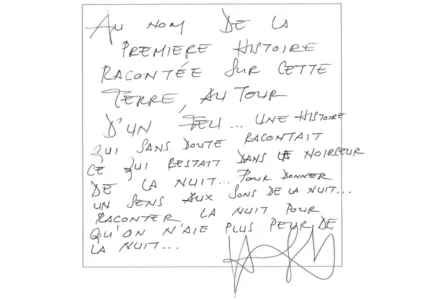 AU NOM DE LA
PREMIERE HISTOIRE
RACONTÉE SUR CETTE
TERRE, AUTOUR
D'UN FEU... UNE HISTOIRE
QUI SANS DOUTE RACONTAIT
CE QUI RESTAIT DANS LA NOIRCEUR
DE LA NUIT... POUR DONNER
UN SENS AUX SONS DE LA NUIT...
RACONTER LA NUIT POUR
QU'ON N'AIE PLUS PEUR DE
LA NUIT...